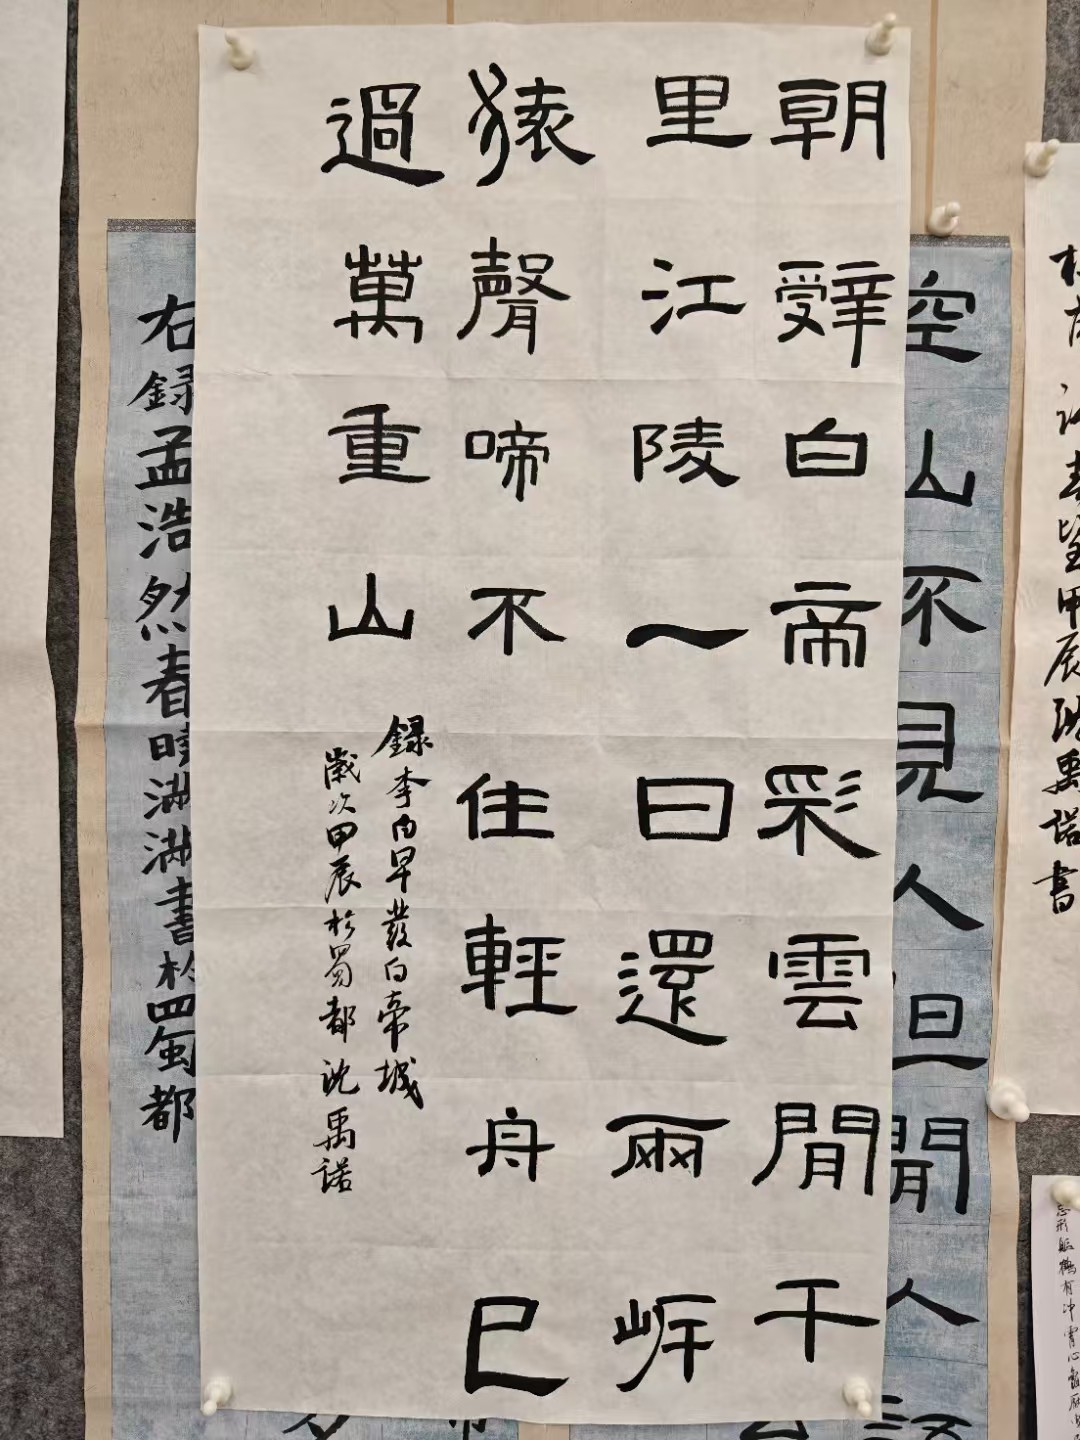 甲辰沈禹諾書
空山不見人但聞人
朝辭白帝彩雲閒千
里江陵一日還兩岸
猿聲啼不住輕舟已
過萬重山
錄李白早發白帝城
歲次甲辰於蜀都沈禹諾
右録孟浩然春曉 書於 蜀都